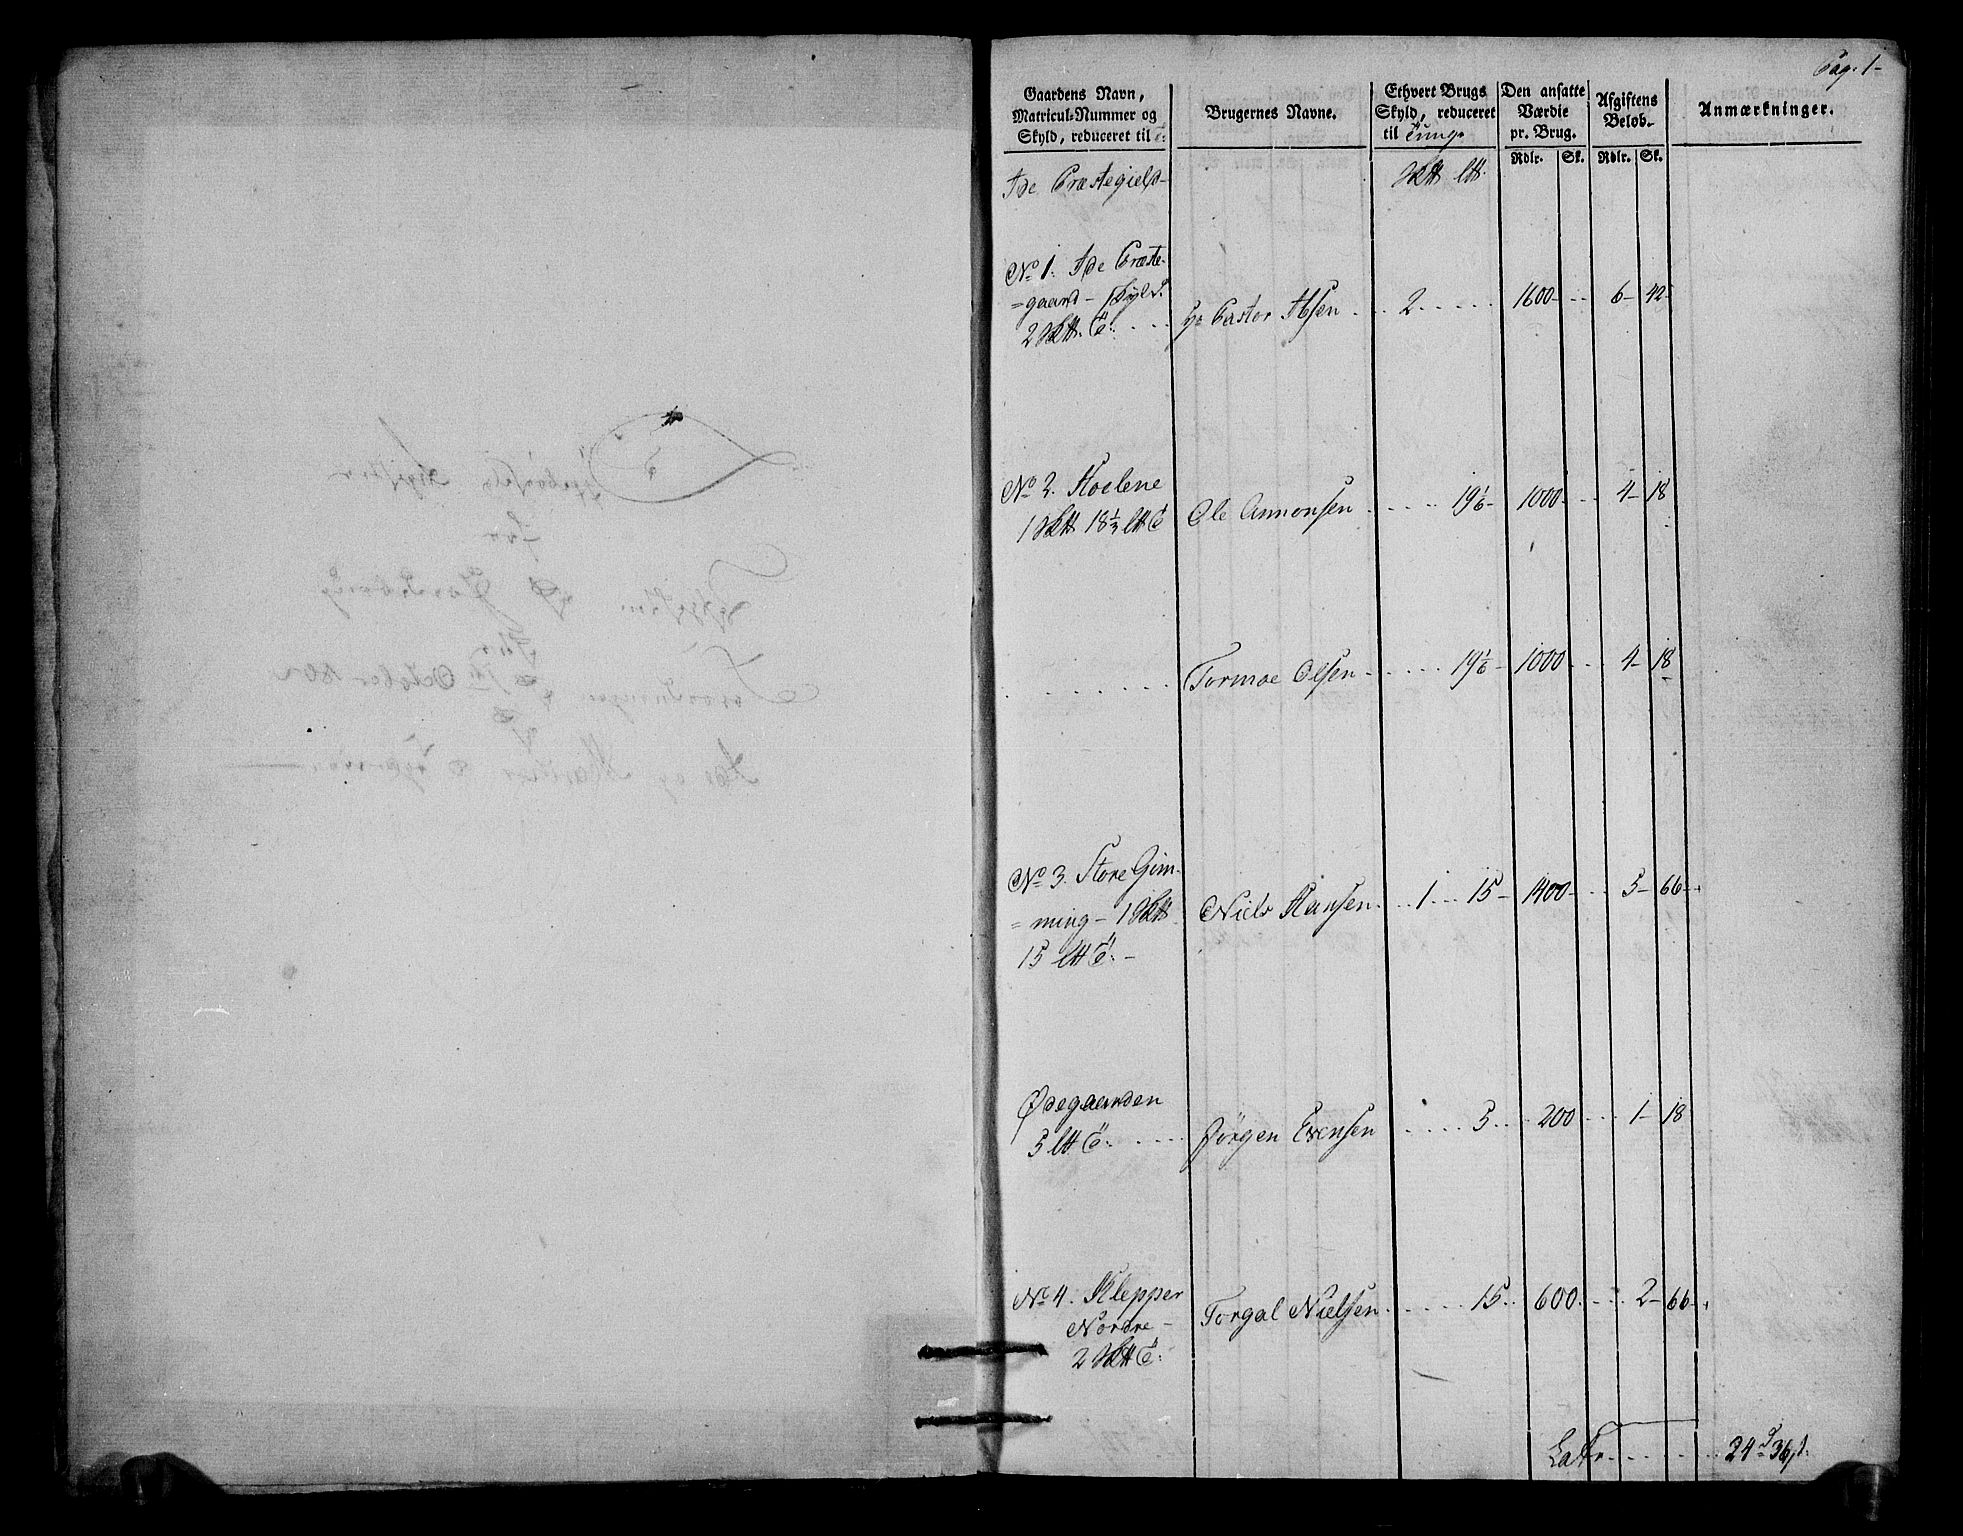 Pag. 1-
Gaardens Navn, Matricul-Nummer og Skyld, reduceret til
Brugernes Navne.
Ethvert Brugs Skyld, reduceret til Tunge
Den ansatte Værdie pr. Brug.
Afgiftens Beløb.
Anmærkninger.
Rdlr. Sk. Rdlr. Sk.
Ide Præstegield-
No 1. Ide Præste-
=gaard- Skyld.
2 . . . . Hr Pastor Ibsen . . . 2 . . . . . 1600 - . . 6- 42-
No 2. Hoelene
1 18 1/3 Ole Amonsen . . . . . 19 1/6 - 1000 . . 4- 18
. . . . . . . Tormoe Olsen . . . . . 19 1/6 - 1000 . . . 4- 18
No 3. Store Gim-
= ming - 1 Niels Hansen . . 1 . . . 15 - 1400 - . . 5- 66-
15
Ødegaarden
5 . . . . Jörgen Evensen . . . . . 5 . . . 200 . . . 1- 18
No 4. Klepper
Nordre -
2 Torgal Nielsen . . . . . 15 . . 600 . . . 2- 66-
Latr . . . . . . . 24 36
October 180